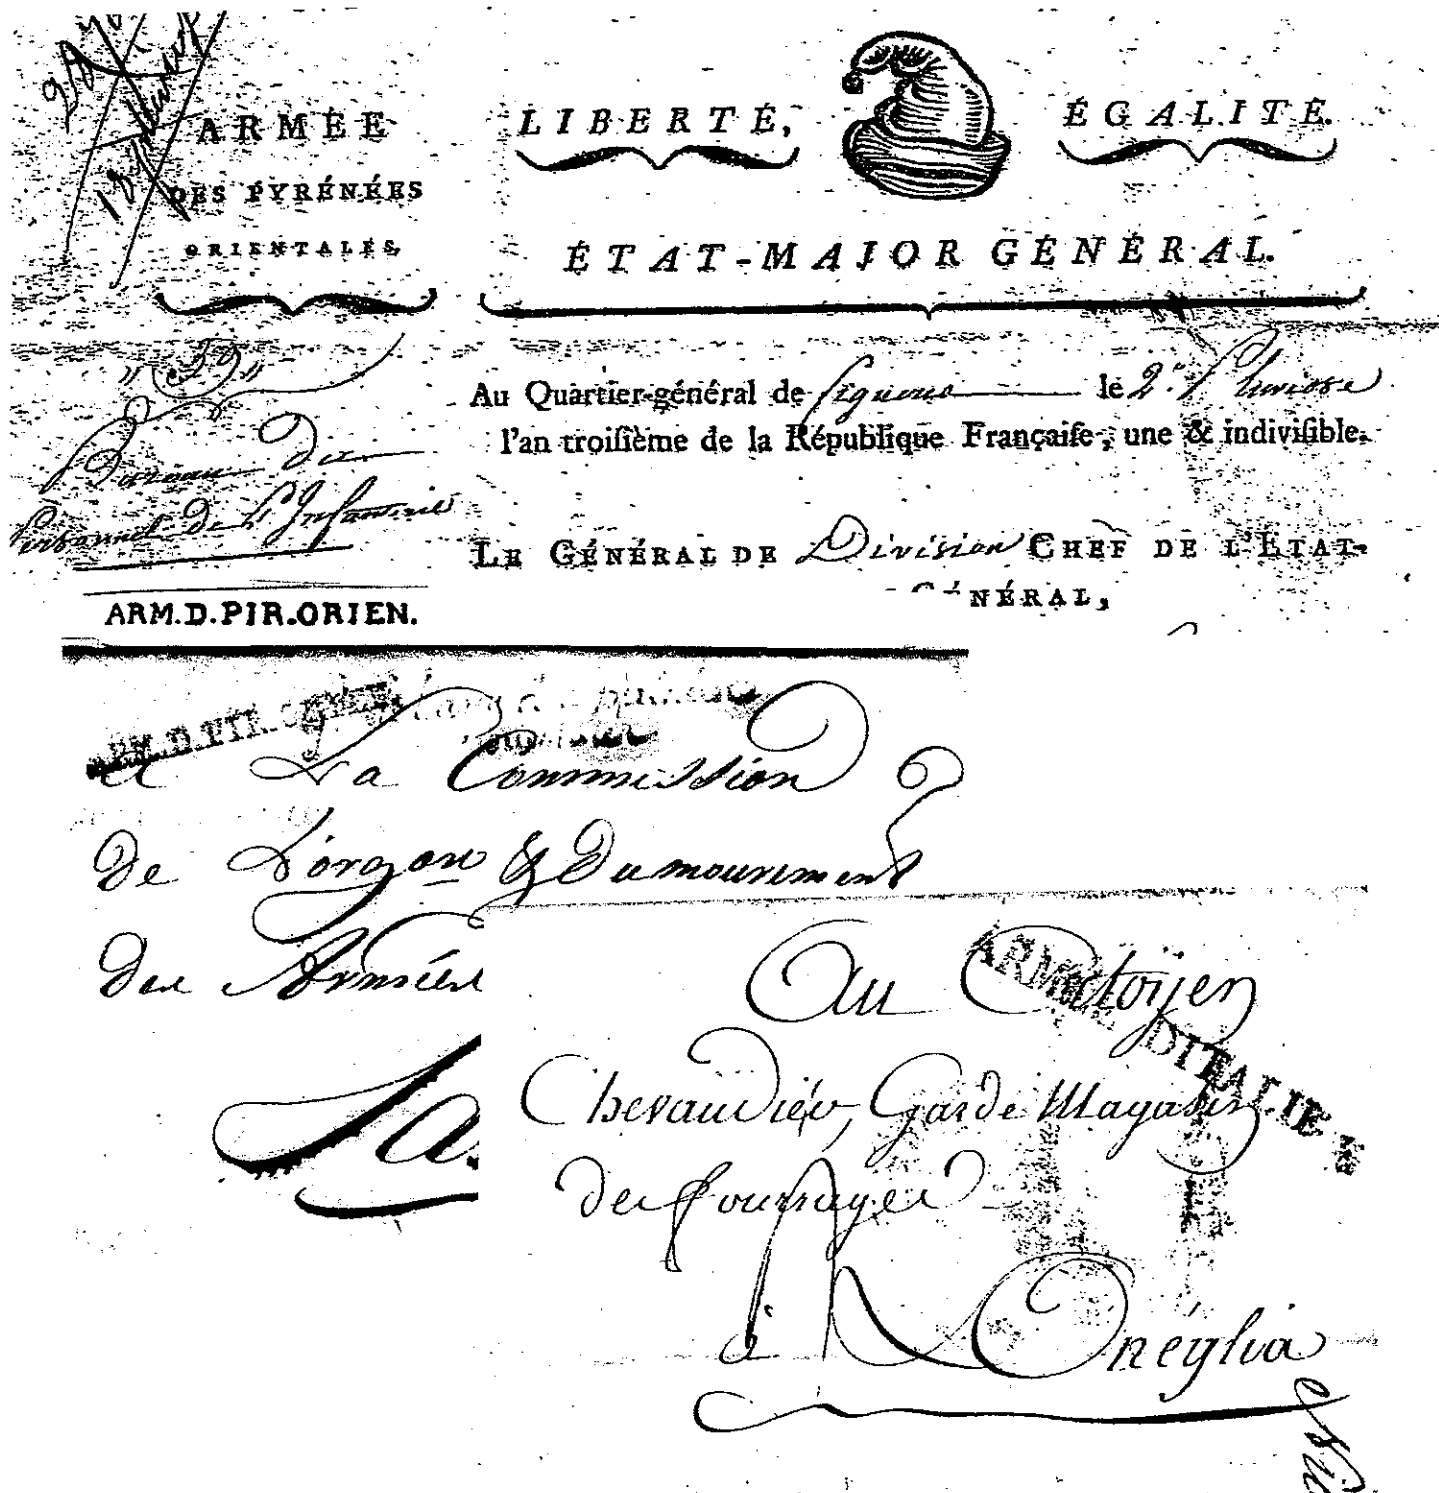 ARMÉE
DES PYRÉNÉES
ORIENTALES.
LIBERTÉ,
ÉGALITÉ.
ÉTAT-MAJOR GÉNÉRAL.
"59"
Bureau du
Personnel de L'Infanterie
ARM.D.PIR.ORIEN.
Au Quartier-général de figueras le 2.e Pluviose
l'an troisième de la République Française, une & indivisible.
LE GÉNÉRAL DE Division CHEF DE L'ÉTAT-
NÉRAL,
ARM.D.PIR.ORIEN.
a La Commission
De L'organ.on & Du mouvement
Des Armées
Au Citoÿen
ARMÉE D'ITALIE
Chevaudier, Garde Magasin
des fourrages
à Onéglia